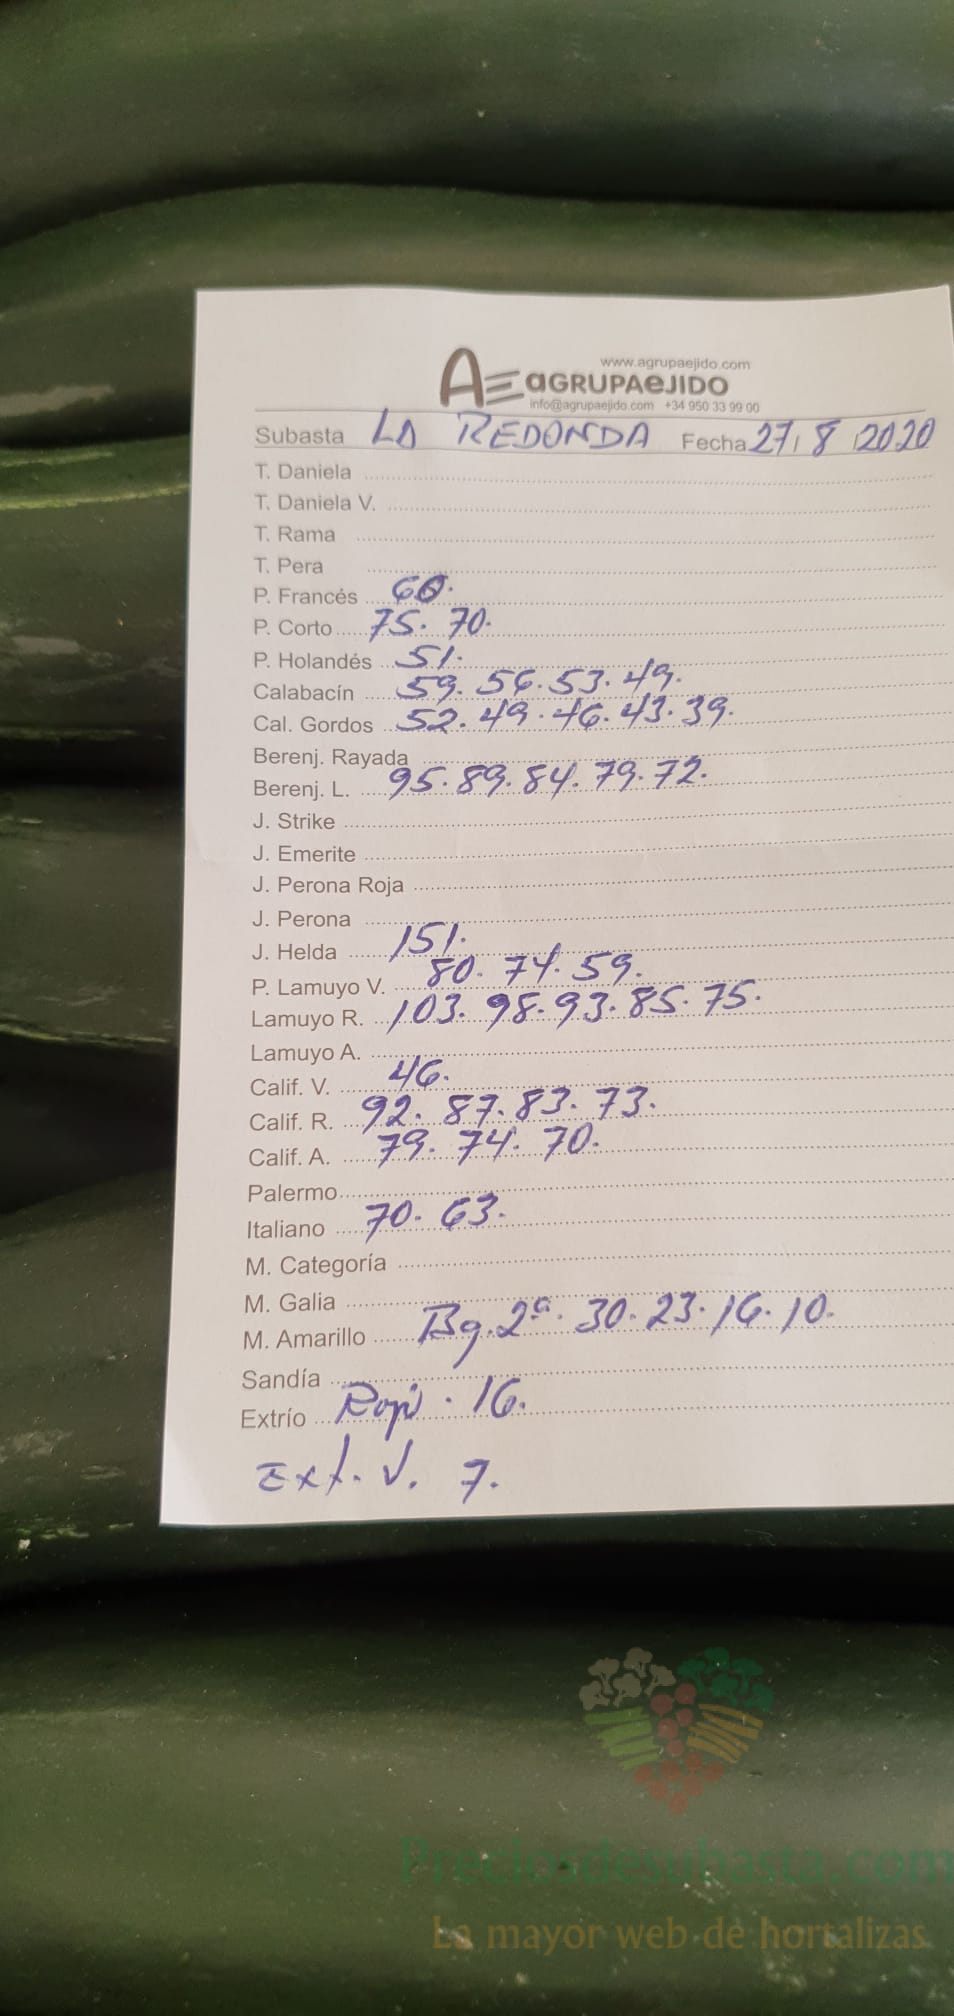 www.agrupaejido.com
AE aGRUPAeJIDO
info@agrupaejido.com +34 950 33 99 00
Subasta LA REDONDA Fecha 27/8/2020
T. Daniela
T. Daniela V.
T. Rama
T. Pera
P. Francés 60.
P. Corto 75. 70.
P. Holandés 51.
Calabacín 59. 56. 53. 49.
Cal. Gordos 52. 49. 46. 43. 39.
Berenj. Rayada
Berenj. L. 95. 89. 84. 79. 72.
J. Strike
J. Emerite
J. Perona Roja
J. Perona
J. Helda 151.
P. Lamuyo V. 80. 74. 59.
Lamuyo R. 103. 98. 93. 85. 75.
Lamuyo A.
Calif. V. 46.
Calif. R. 92. 87. 83. 73.
Calif. A. 79. 74. 70.
Palermo
Italiano 70. 63.
M. Categoría
M. Galia
M. Amarillo Bg. 2ª. 30. 23. 16. 10.
Sandía
Extrío Rojo. 16.
Ext. V. 7.
Preciosdesubasta.com
La mayor web de hortalizas